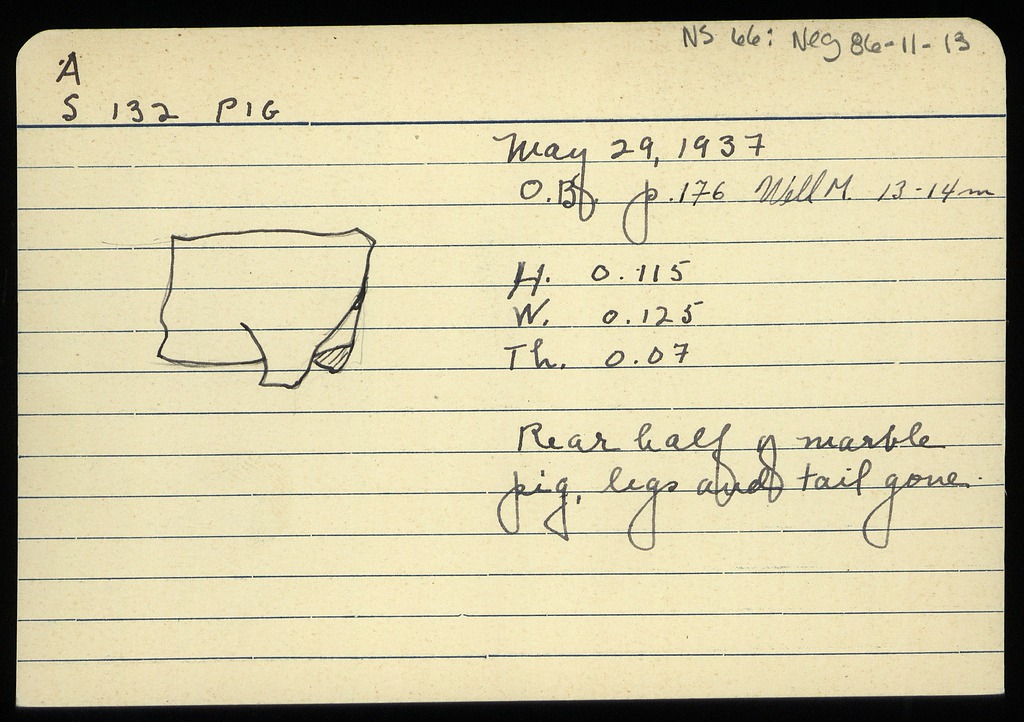 NS 66: Neg 86-11-13
A
S 132 PIG
May 29, 1937
O.Bf. p.176 Well M. 13-14m
H. 0.115
W. 0.125
Th. 0.07
Rear half of marble
pig, legs and tail gone.